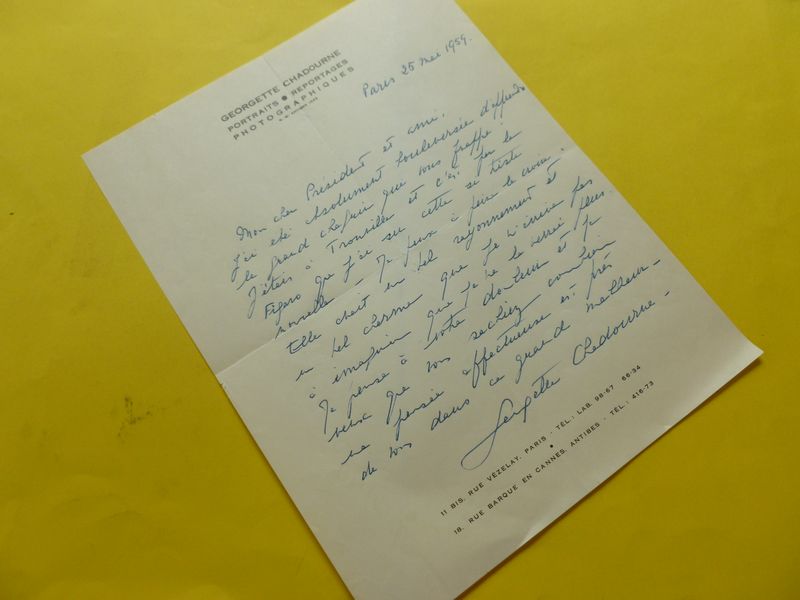 GEORGETTE CHADOURNE
PORTRAITS • REPORTAGES
PHOTOGRAPHIQUES
Paris 25 mai 1959.
Mon cher Président et ami,
J'ai été absolument bouleversée d'apprendre
le grand chagrin qui vous frappe !
J'étais à Trouville et c'est par le
Figaro que j'ai su cette si triste
nouvelle - Je peux à peine le croire.
Elle était un tel rayonnement et
un tel charme que je n'arrive pas
à imaginer que je ne la verrai plus.
Je pense à votre douleur et je
veux que vous sachiez combien
ma pensée affectueuse est près
de vous dans ce grand malheur -
Georgette Chadourne -
11 BIS, RUE VEZELAY, PARIS - TÉL.: LAB. 98-67 66-34
•
18, RUE BARQUE EN CANNES, ANTIBES - TÉL.: 416-73